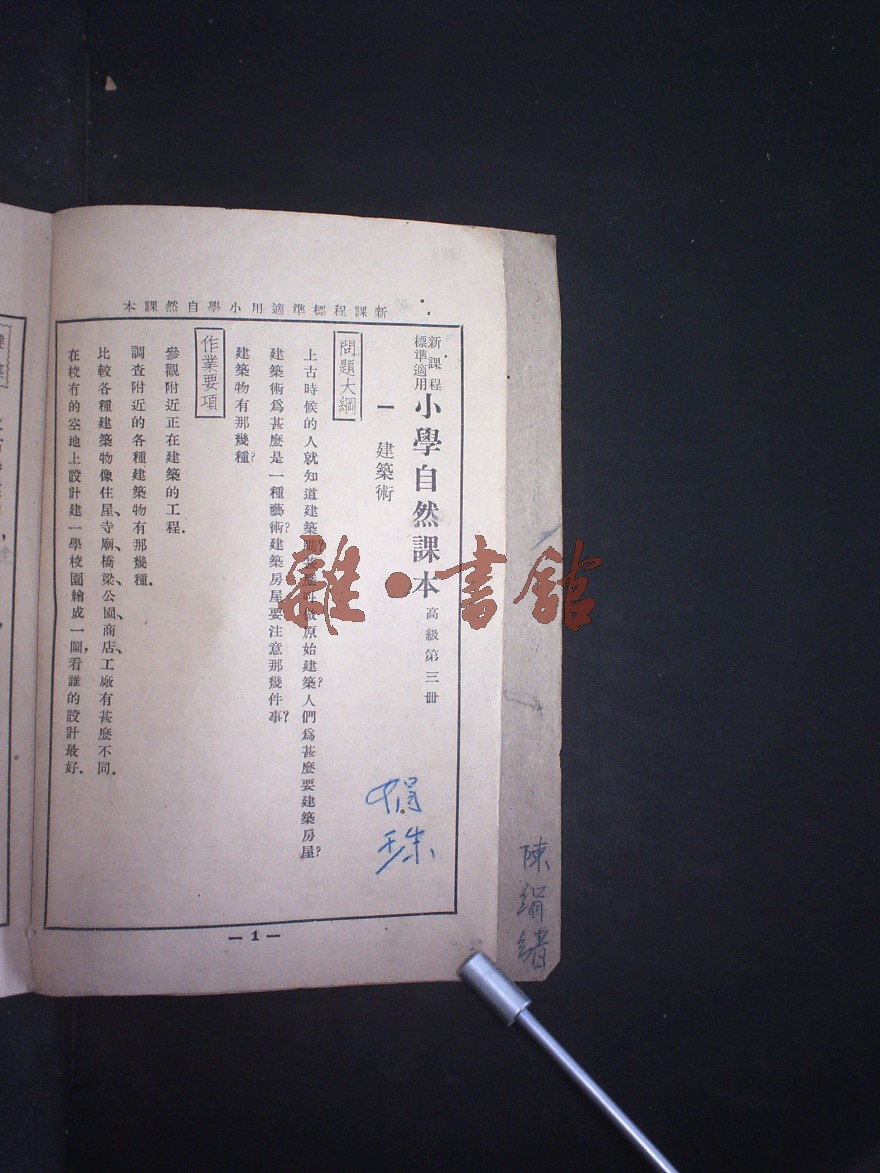 新課程標準適用小學自然課本
新課程
標準適用
小學自然課本 高級第三冊
一 建築術
問題大綱
上古時候的人就知道建築嗎?甚麼叫做原始建築?人們爲甚麼要建築房屋?
建築術爲甚麼是一種藝術?建築房屋要注意那幾件事?
建築物有那幾種?
作業要項
參觀附近正在建築的工程.
調查附近的各種建築物有那幾種.
比較各種建築物像住屋、寺廟、橋梁、公園、商店、工廠有甚麼不同.
在校有的空地上設計建一學校園繪成一圖,看誰的設計最好.
— 1 —
陳絹
雜·書館